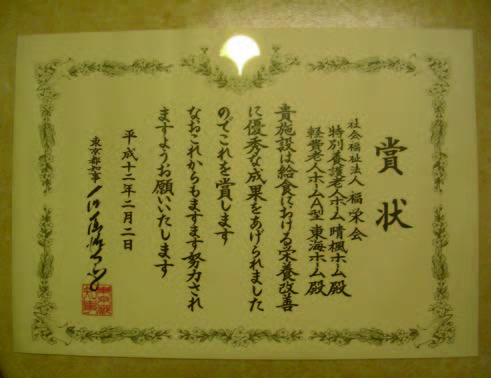 賞状
社会福祉法人 福栄会
特別養護老人ホーム 晴楓ホーム殿
軽費老人ホームA型 東海ホーム殿
貴施設は給食における栄養改善
に優秀な成果をあげられました
のでこれを賞します
なおこれからもますます努力され
ますようお願いいたします
平成十二年二月二日
東京都知事